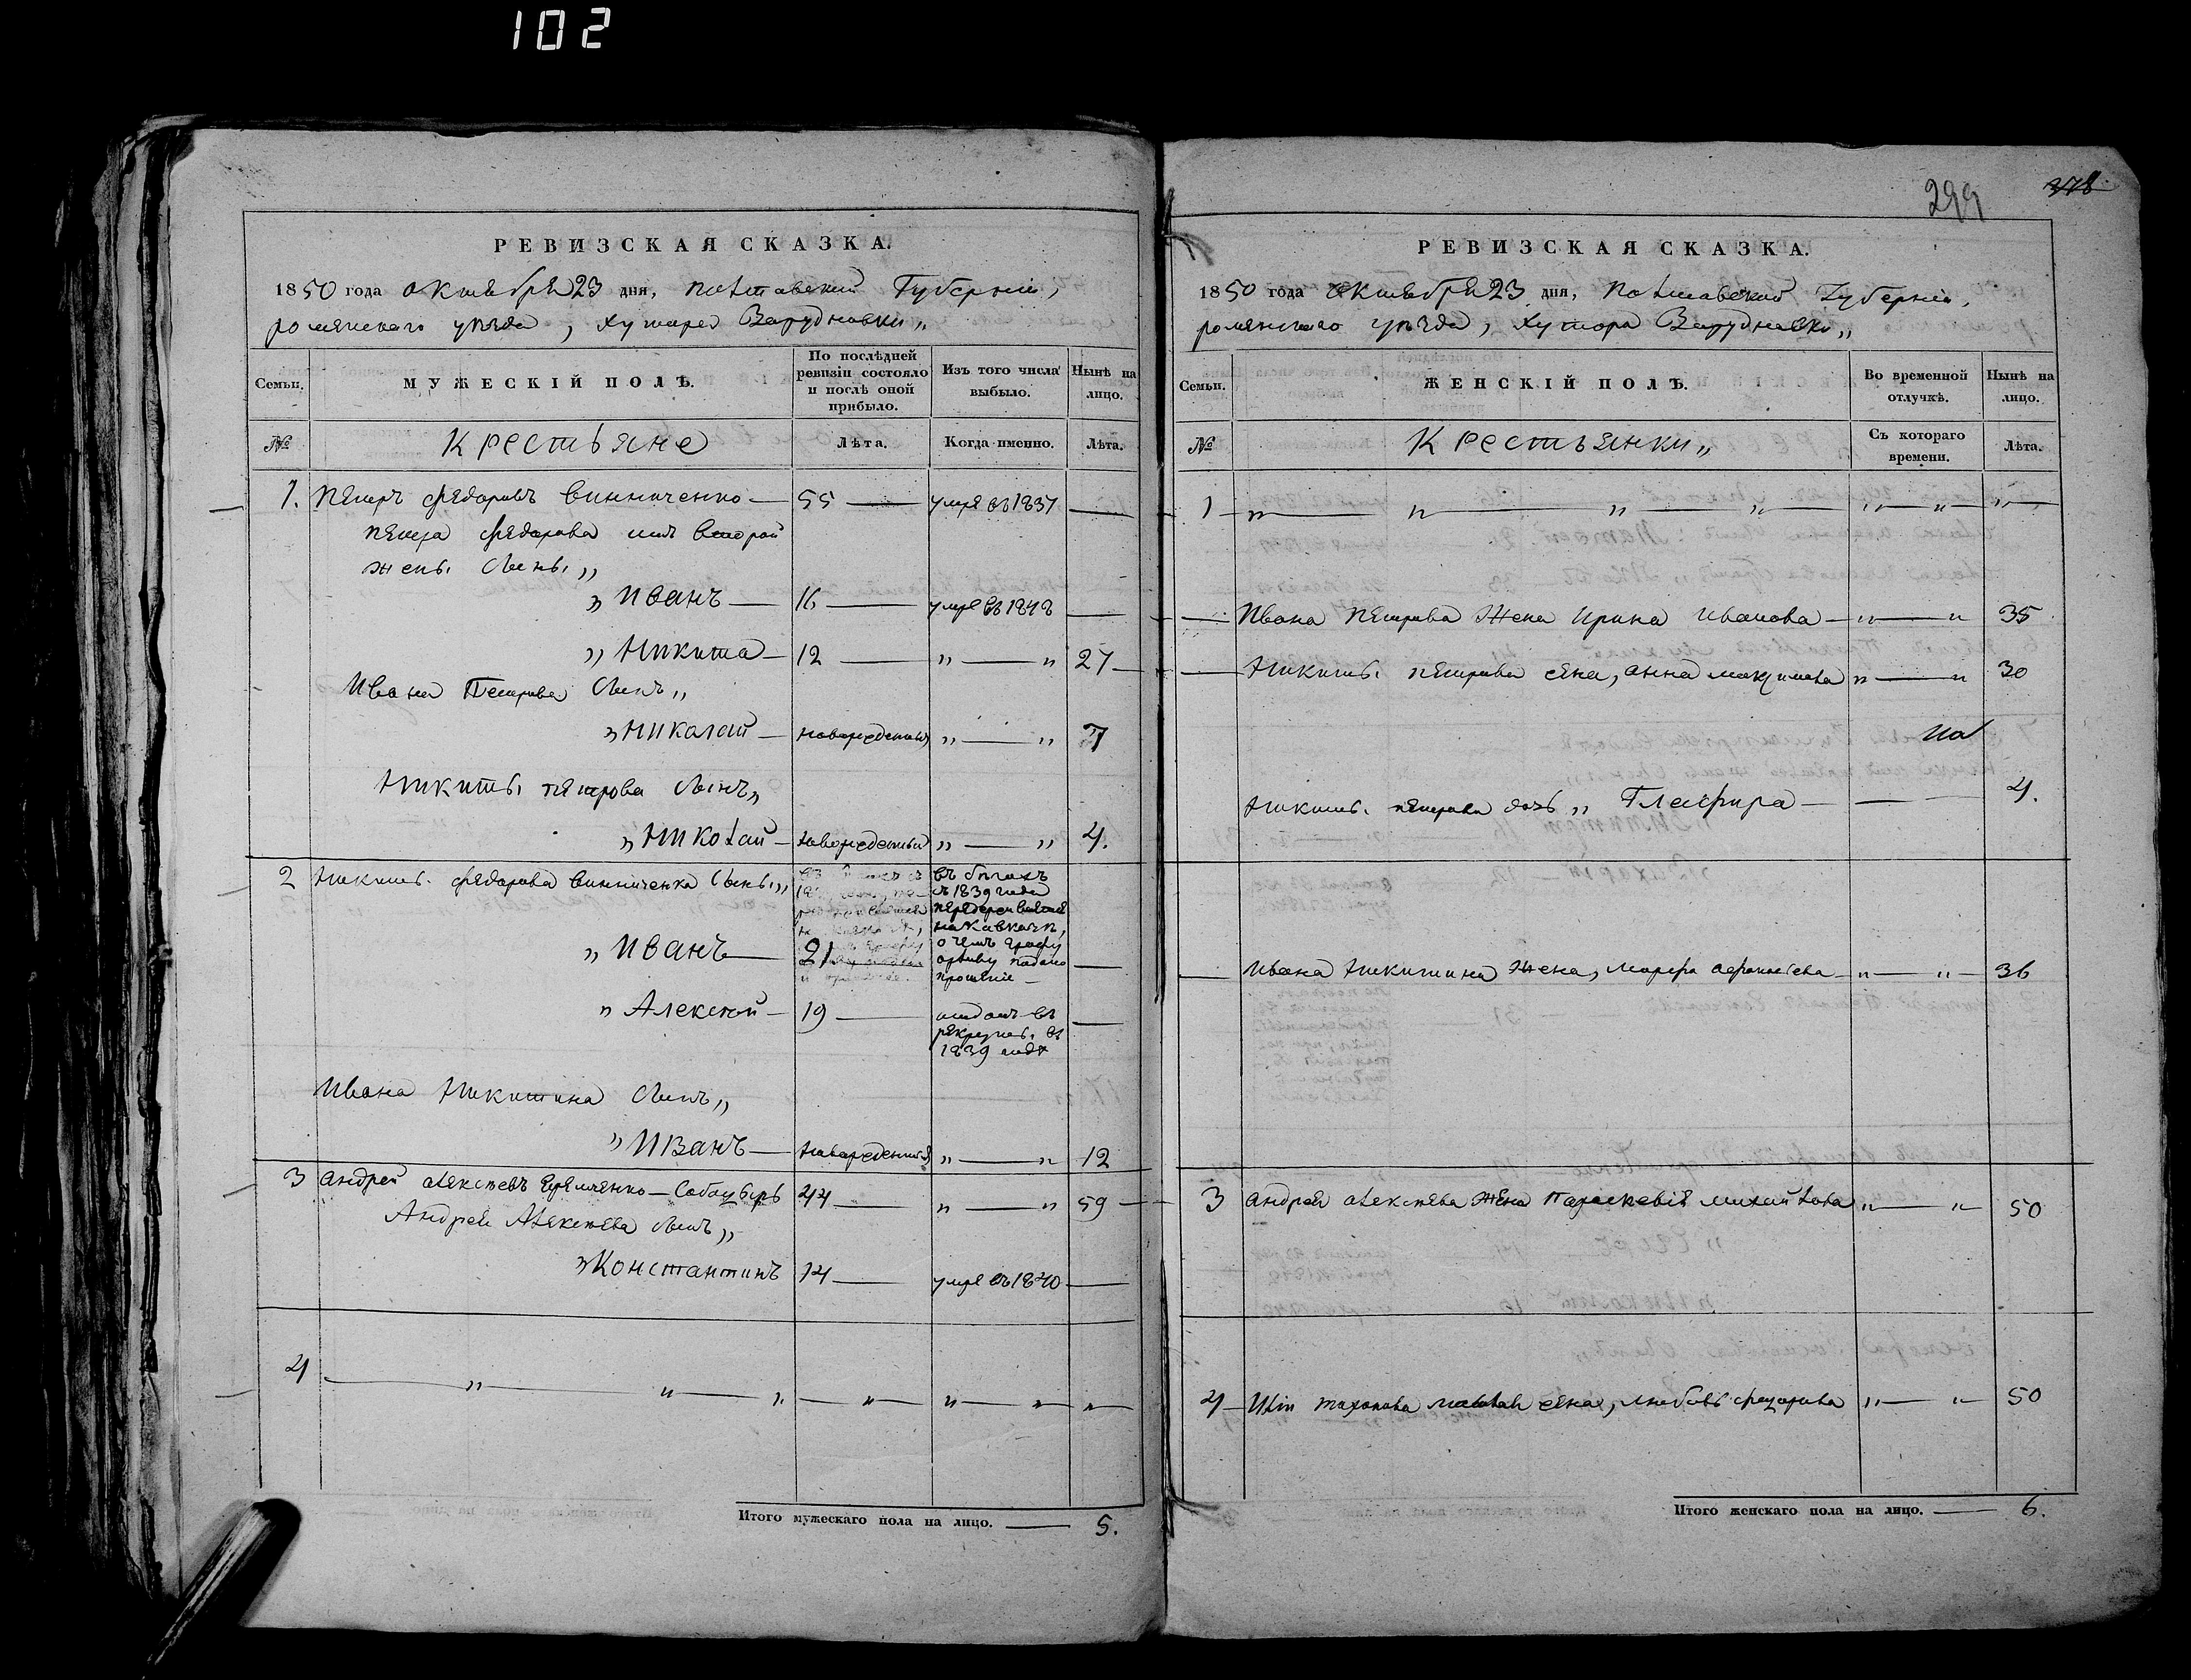 102
РЕВИЗСКАЯ СКАЗКА.
1850 года октября 23 дня, полтавской Губерніи,
роменскаго уѣзда, хутора Заруднавки „
Семьи.
МУЖЕСКІЙ ПОЛЪ.
По послѣдней ревизіи состояло и послѣ оной прибыло.
Изъ того числа выбыло.
Нынѣ на лицо.
№
Крестьяне
Лѣта.
Когда именно.
Лѣта.
1. Петръ федаровъ винниченко — 55 — умре въ 1837 —
петра федарова отъ второй
жены сыны „
„ Иванъ — 16 — умре въ 1848 —
„ Никита — 12 — „ — „ 27 —
Ивана Петрова сынъ „
„ Николай — новорожденный „ — „ 7
Никиты петрова сынъ „
„ Николай — новорожденный „ — „ 4.
2 Никиты федарова винниченка сыны „
въ бѣгахъ
съ 1839 года
на Кавказѣ,
о чемъ графу
подано
прошеніе —
„ Иванъ — 21 —
„ Алексѣй — 19 — отданъ въ
рекруты въ
1839 годѣ
Ивана Никитина сынъ „
„ Иванъ — новорожденный „ — „ 12
3 Андрей алексѣевъ — 44 — „ — „ 59 —
Андрея Алексѣева сынъ „
„ Константинъ 14 — умре въ 1840 —
4 — „ — „ — „ — „ — „ — „ — „ —
Итого мужескаго пола на лицо. — 5.
299
378
РЕВИЗСКАЯ СКАЗКА.
1850 года октября 23 дня, полтавской Губерніи,
роменскаго уѣзда, хутора Заруднавки „
Семьи.
ЖЕНСКІЙ ПОЛЪ.
Во временной отлучкѣ.
Нынѣ на лицо.
№
Крестьянки „
Съ котораго времени.
Лѣта.
1 — „ — „ — „ — „ — „ — „ — „ —
— Ивана петрова жена Ирина Иванова — „ — „ 35
— Никиты петрова жена, анна максимова „ — „ 30
Никиты петрова дочь „ Глафира — — — 4.
— Ивана Никитина жена, марфа афанасева — „ — „ — 36
3 Андрея алексѣева жена Параскевія михайлова „ — „ — 50
4 — жена, любовь федорова „ — „ — 50
Итого женскаго пола на лицо. — 6.